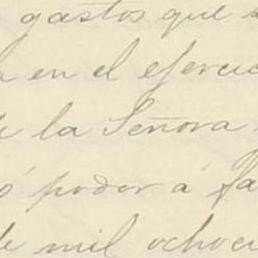 gastos que s
n en el ejercic
e la Señora
ó poder á fa
de mil ochoci